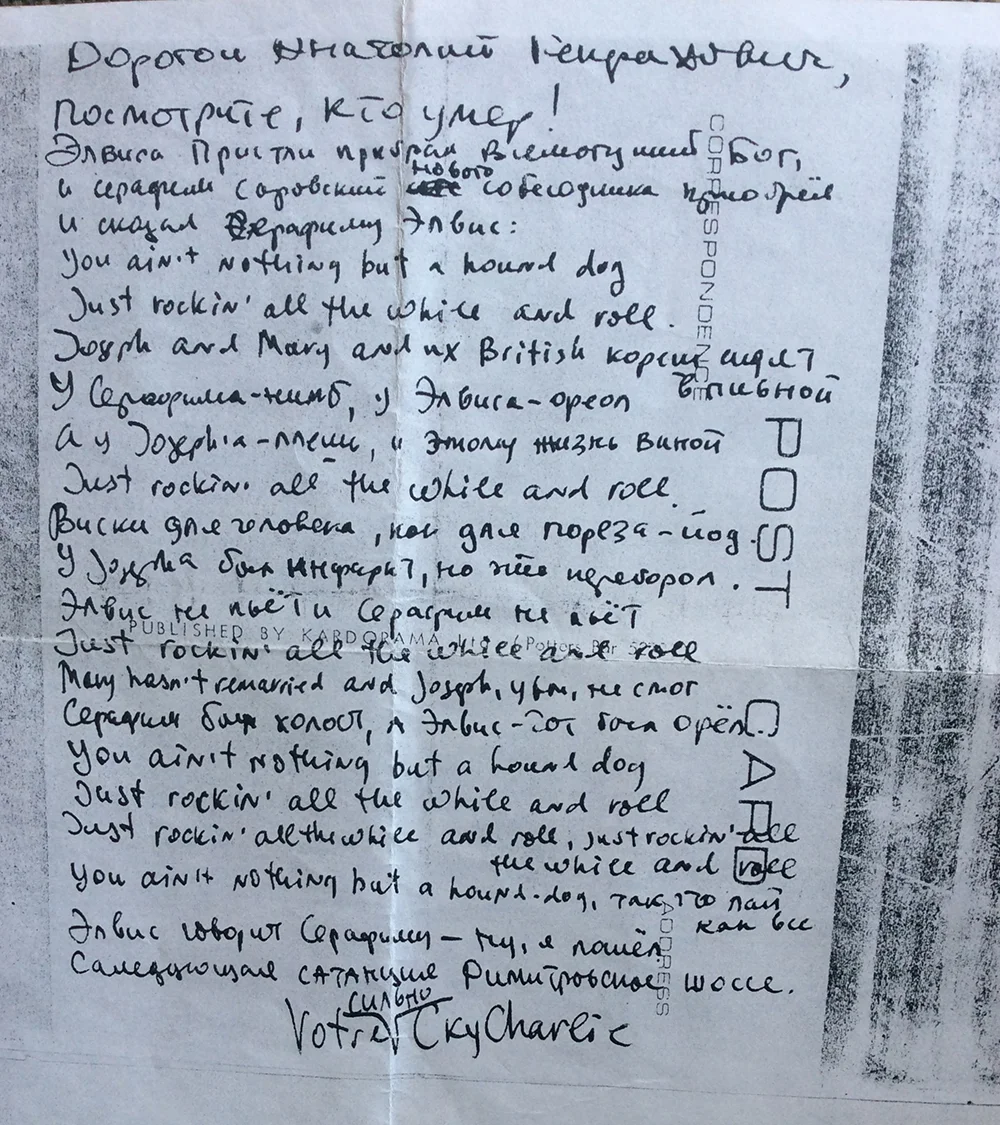 Дорогой Анатолий Генрахович,
посмотрите, кто умер!
Элвиса Пристли прибрал Всемогущий Бог,
и серафим Саровский нового собеседника приобрёл
и сказал Серафиму Элвис:
You ain't nothing but a hound dog
Just rockin' all the while and roll.
Joseph and Mary and их British кореш сидят
в пивной
У Серафима-нимб, у Элвиса-ореол
а у Joseph'а-плешь, и этому жизнь виной
Just rockin' all the while and roll.
Виски для человека, как для пореза-йод.
У Joseph'а был инфаркт, но это переборол.
Элвис не пьёт и Серафим не пьёт
Just rockin' all the while and roll
Mary hasn't remarried and Joseph, увы, не смог
Серафим был холост, а Элвис-тот был орёл.
You ain't nothing but a hound dog
Just rockin' all the while and roll
Just rockin' all the while and roll, just rockin' all
the while and roll
You ain't nothing but a hound-dog, так что лай
как все
Элвис говорит Серафиму - ну, я пошёл
Саледующая сатанция Римитровское шоссе.
Votre сильно СкуCharlie
CORRESPONDENCE
POST CARD
ADDRESS
PUBLISHED BY KARDORAMA Ltd. Potters Bar